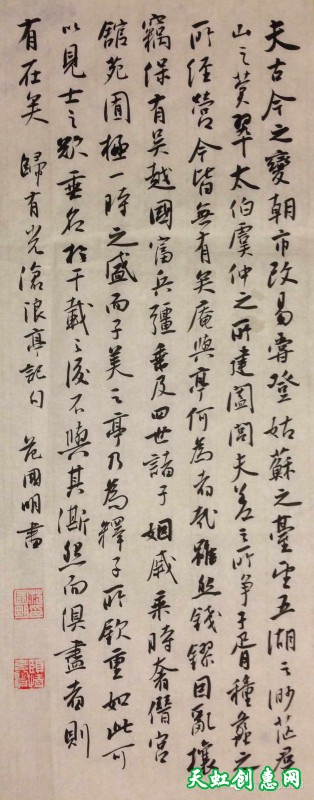 夫古今之變朝市改易嘗登姑蘇之臺望五湖之渺茫群
山之蒼翠太伯虞仲之所建闔閭夫差之所争子胥種蠡之
所經營今皆無有矣庵與亭何為者哉雖然錢鏐因亂攘
竊保有吳越國富兵彊垂及四世諸子姻戚乘時奢僭宮
舘苑囿極一時之盛而子美之亭乃為釋子所欽重如此可
以見士之欲垂名於千載之後不與其澌然而俱盡者則
有在矣 歸有光滄浪亭記句 范國明書
天虹创惠网